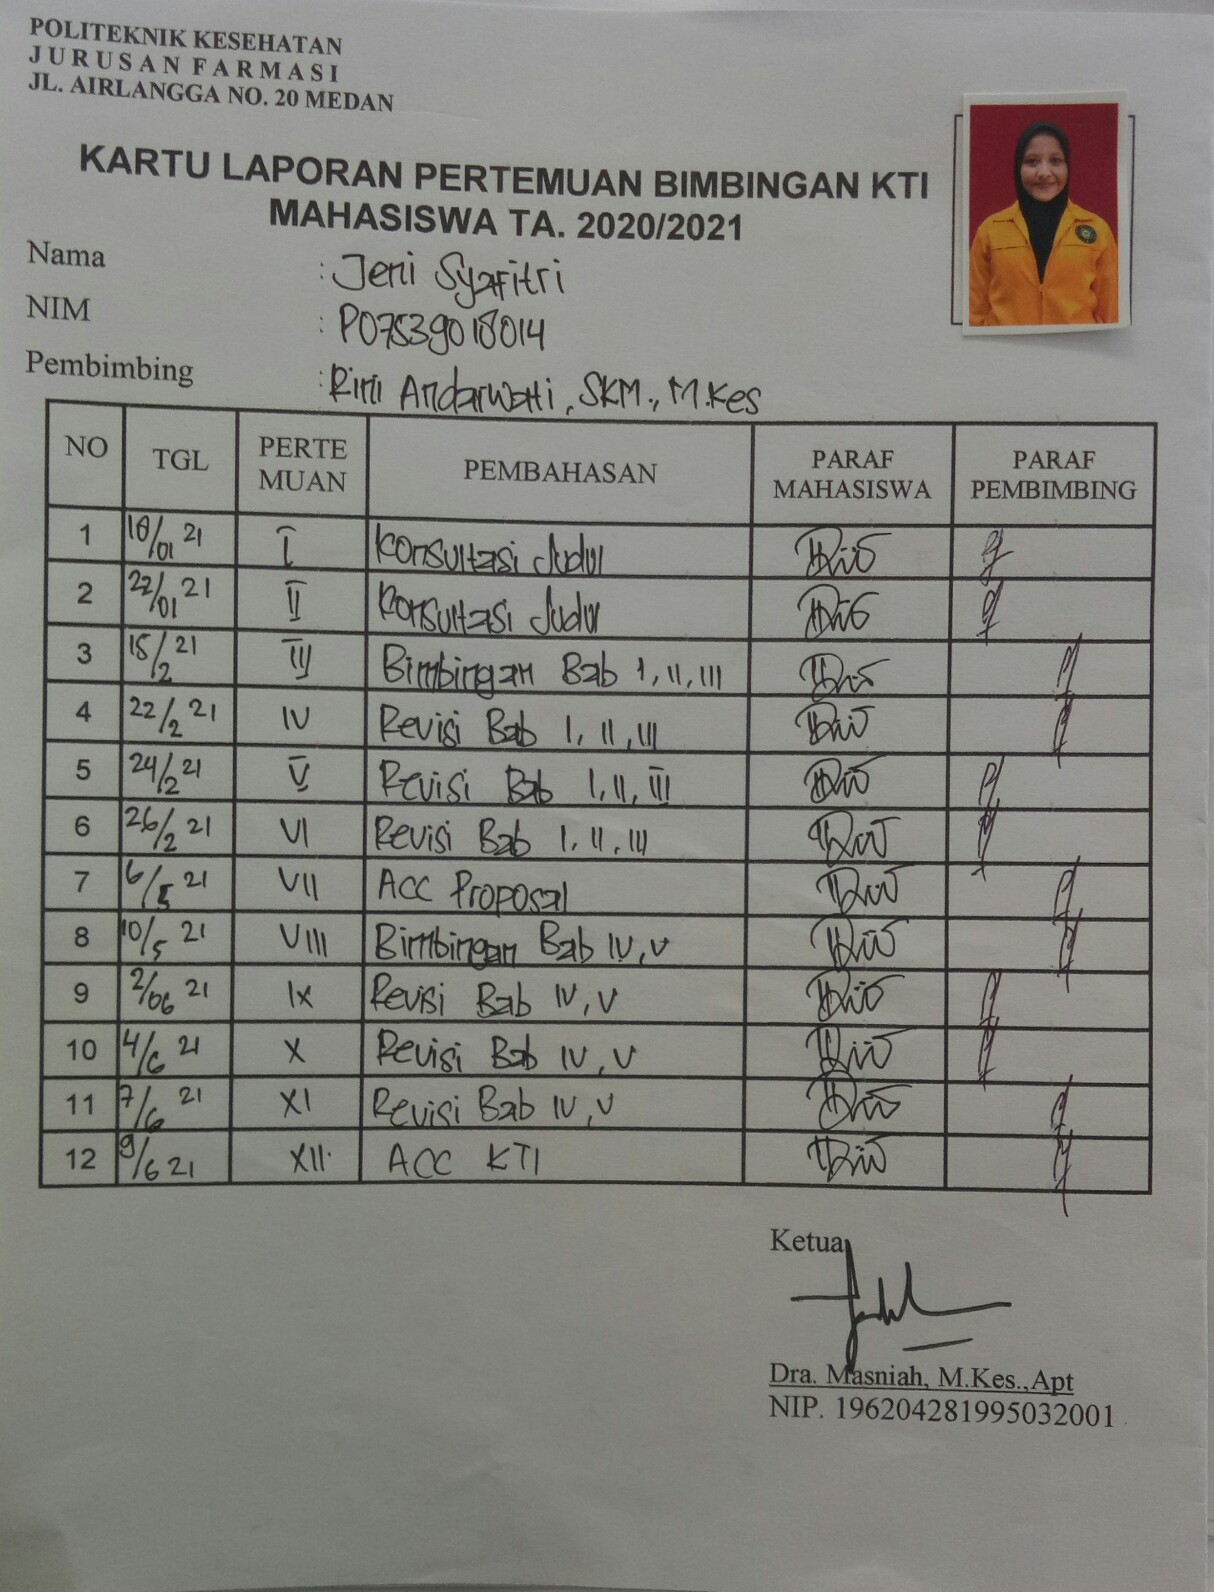 POLITEKNIK KESEHATAN
JURUSAN FARMASI
JL. AIRLANGGA NO. 20 MEDAN
KARTU LAPORAN PERTEMUAN BIMBINGAN KTI
MAHASISWA TA. 2020/2021
Nama : Jeni Syafitri
NIM : P07539018014
Pembimbing : Rini Andarwati, SKM., M.Kes
NO TGL PERTE MUAN PEMBAHASAN PARAF MAHASISWA PARAF PEMBIMBING
1 18/01 21 I Konsultasi Judul
2 22/01 21 II Konsultasi Judul
3 15/2 21 III Bimbingan Bab I, II, III
4 22/2 21 IV Revisi Bab I, II, III
5 24/2 21 V Revisi Bab I, II, III
6 26/2 21 VI Revisi Bab I, II, III
7 6/5 21 VII ACC Proposal
8 10/5 21 VIII Bimbingan Bab IV, V
9 2/06 21 IX Revisi Bab IV, V
10 4/6 21 X Revisi Bab IV, V
11 7/6 21 XI Revisi Bab IV, V
12 9/6 21 XII ACC KTI
Ketua
Dra. Masniah, M.Kes.,Apt
NIP. 196204281995032001